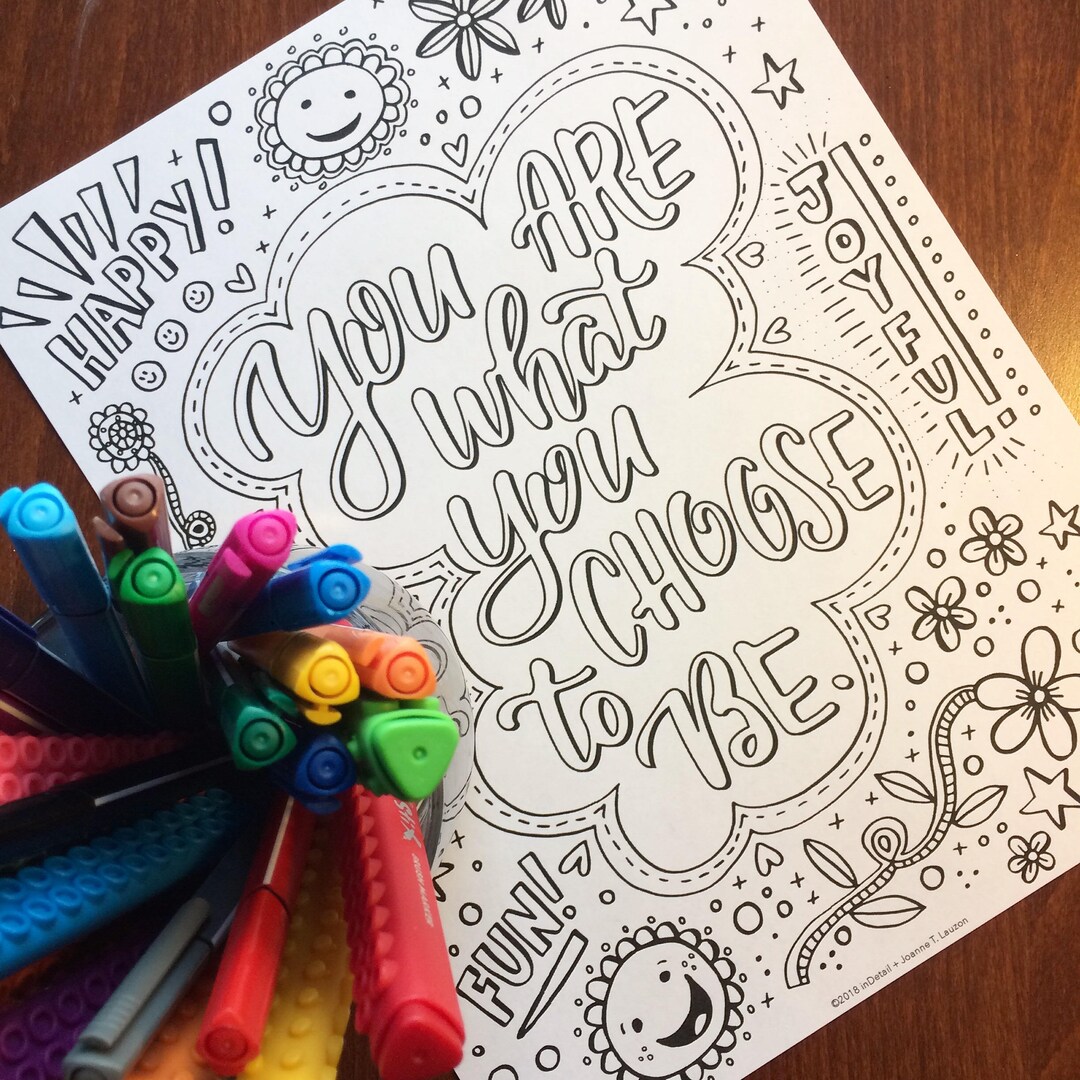 HAPPY!
JOYFUL.
YOU ARE
what
you
CHOOSE
to BE.
FUN!
©2018 inDetail + Joanne T. Lauzon